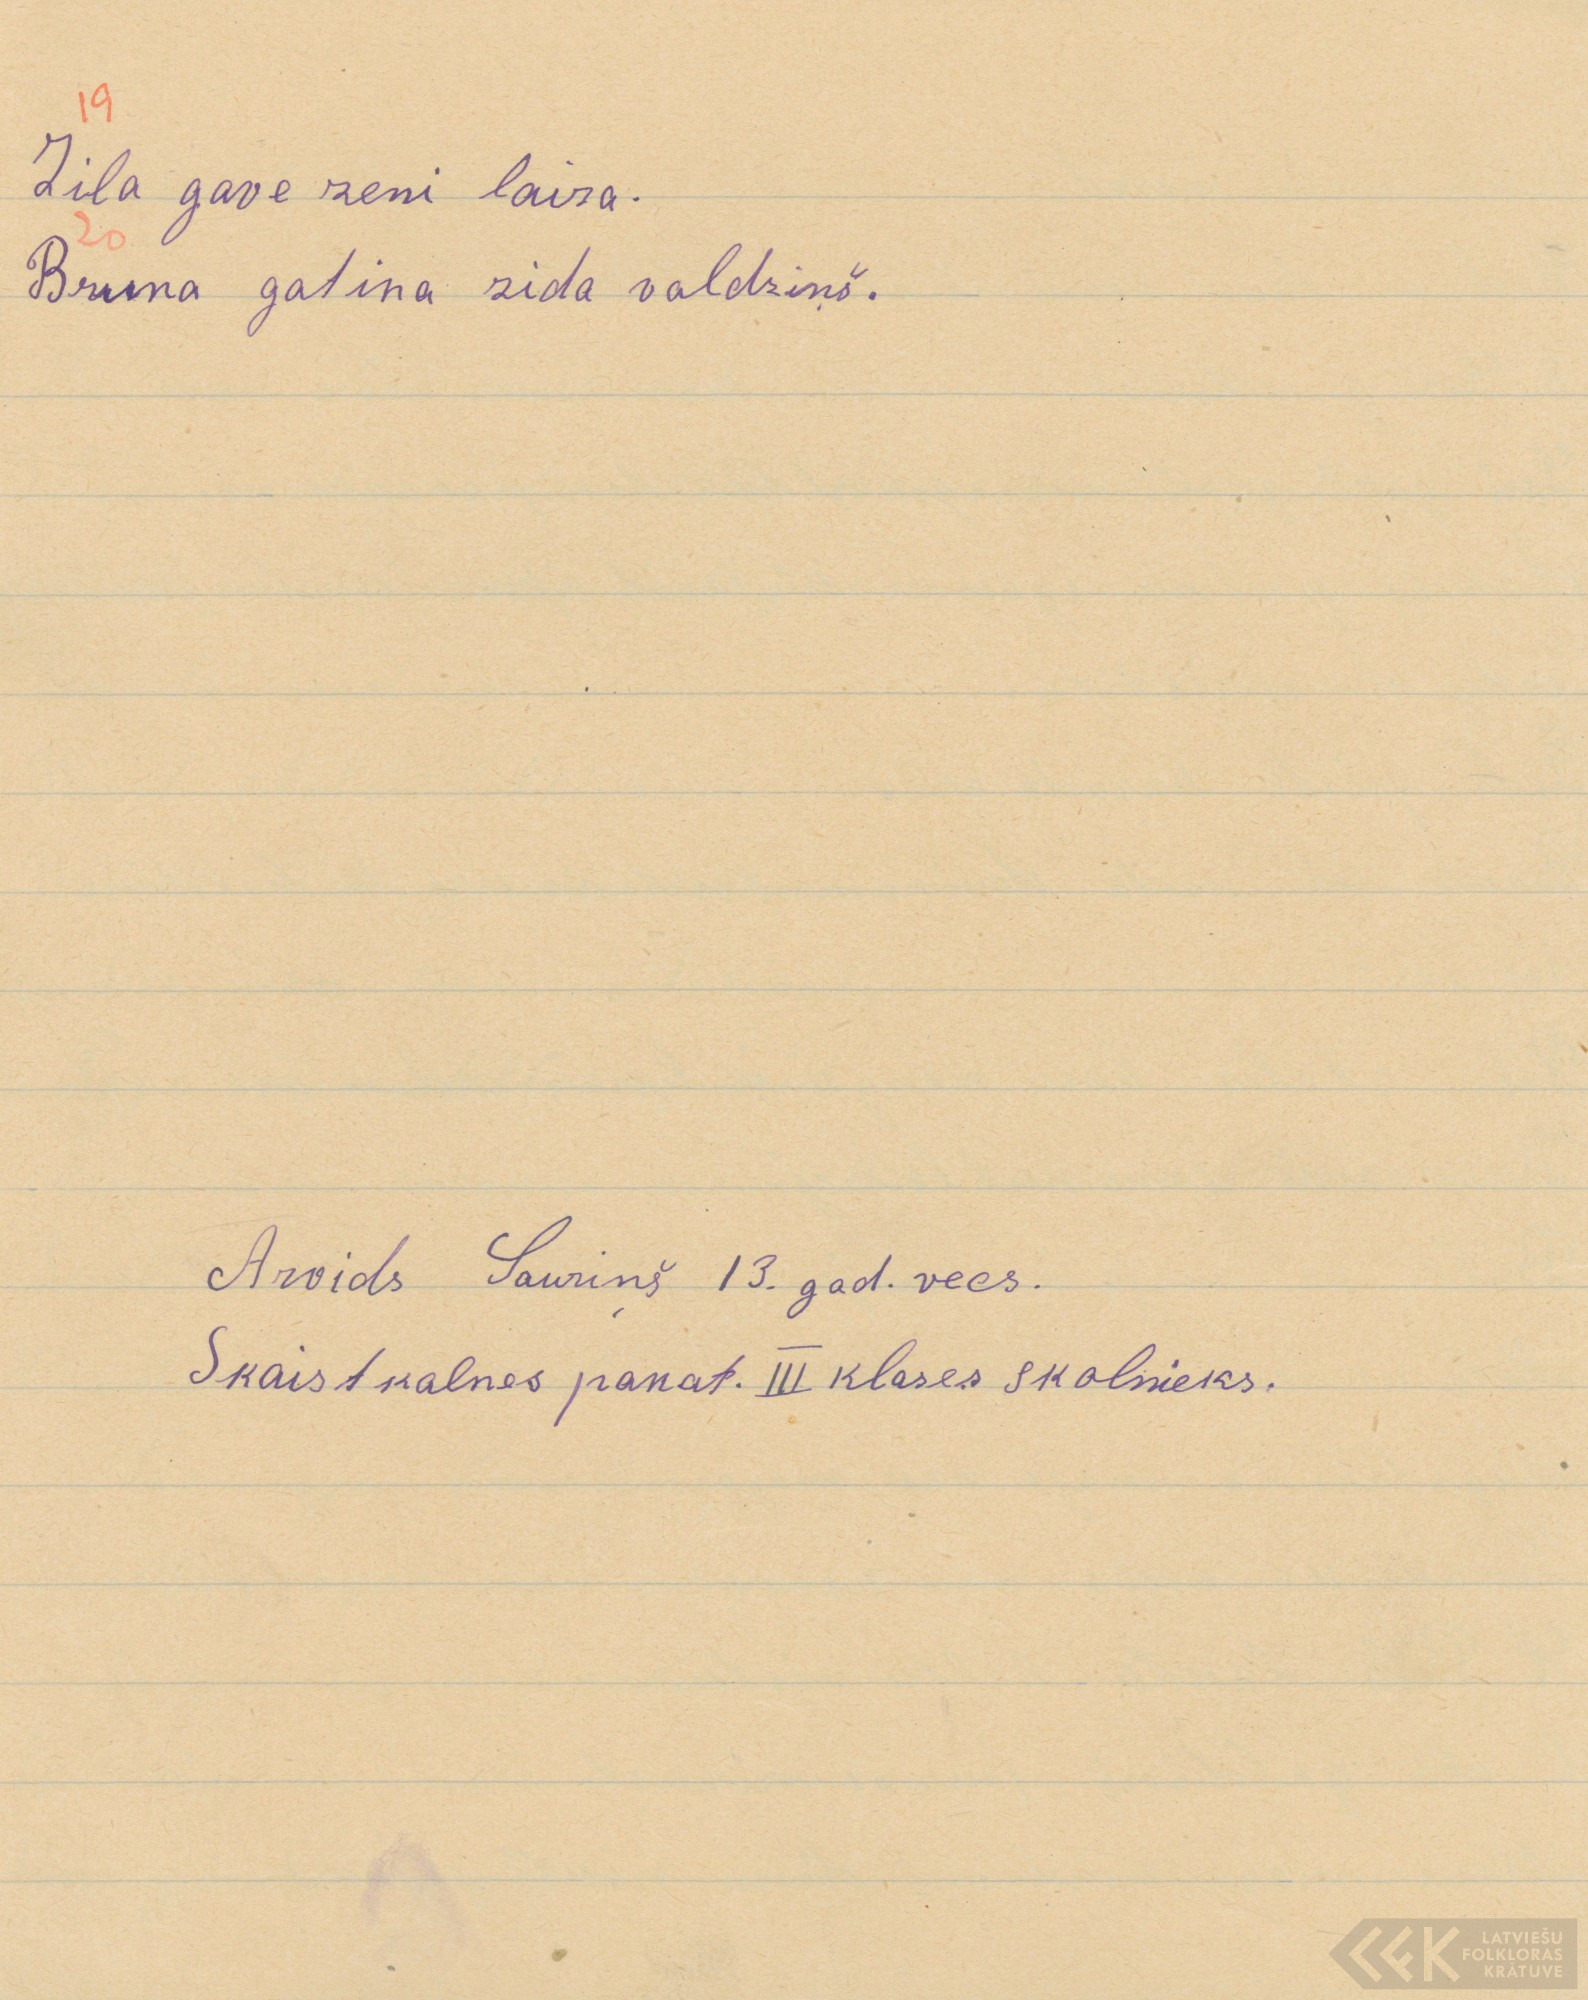 19
Zila gave zeni laiza.
20
Bruna gatina zida valdziņš.
Arvids Sauriņš 13. gad. vecs.
Skaistkalnes pamat. III klases skolnieks.
LATVIEŠU
FOLKLORAS
KRĀTUVE